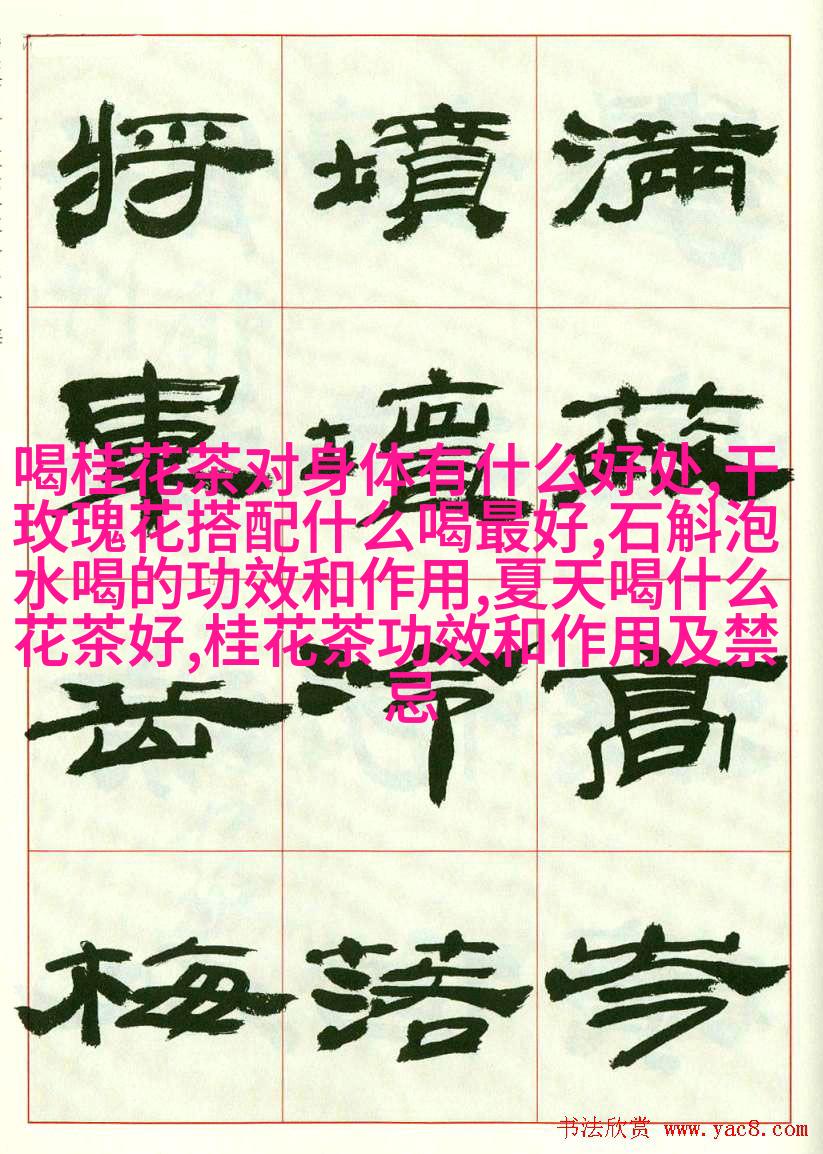 滿高岑
墳壇冷落
將軍岳梅
喝桂花茶对身体有什么好处,干
玫瑰花搭配什么喝最好,石斛泡
水喝的功效和作用,夏天喝什么
花茶好,桂花茶功效和作用及禁
忌
书法欣赏 www.yac8.com